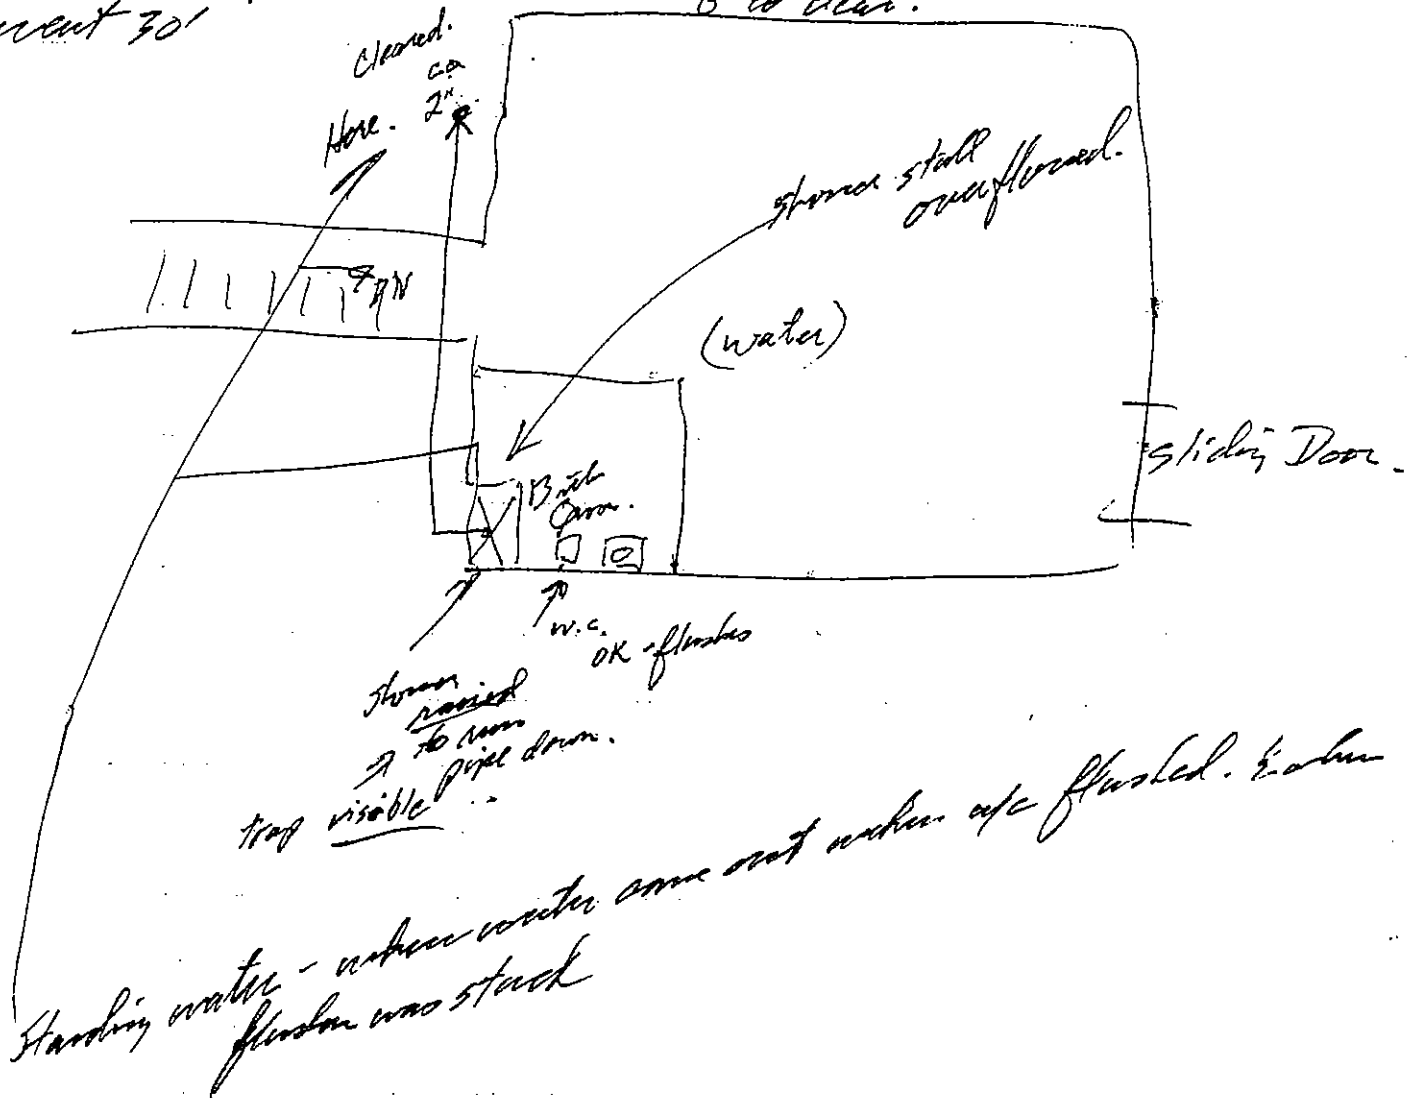 went 30'
to clear.
Cleared.
co
2"
Here.
shower stall
overflowed.
DN
(water)
Sliding Door.
Bath
w.c.
OK - flushes
shower
raised
to run
pipe down.
trap visible
Standing water - where water came out when w/c flushed. & when
flusher was stuck